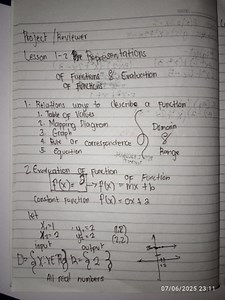 Project / Reviewer
Lesson 1-2 Representations
of Functions & Evaluation
of Functions
1. Relations ways to describe a function
1. Table of Values
2. Mapping Diagram
3. Graph
4. Rule or correspondence
5. Equation
Domain
&
Range
2. Evaluation of Function
of Function
f(x) = 2 → f(x) = mx + b
Constant function f(x) = 0x + 2
Let
x₁=1 y₁=2 (1,2)
x₂=2 y₂=2 (2,2)
input output
All real numbers
07/06/2025 23:11